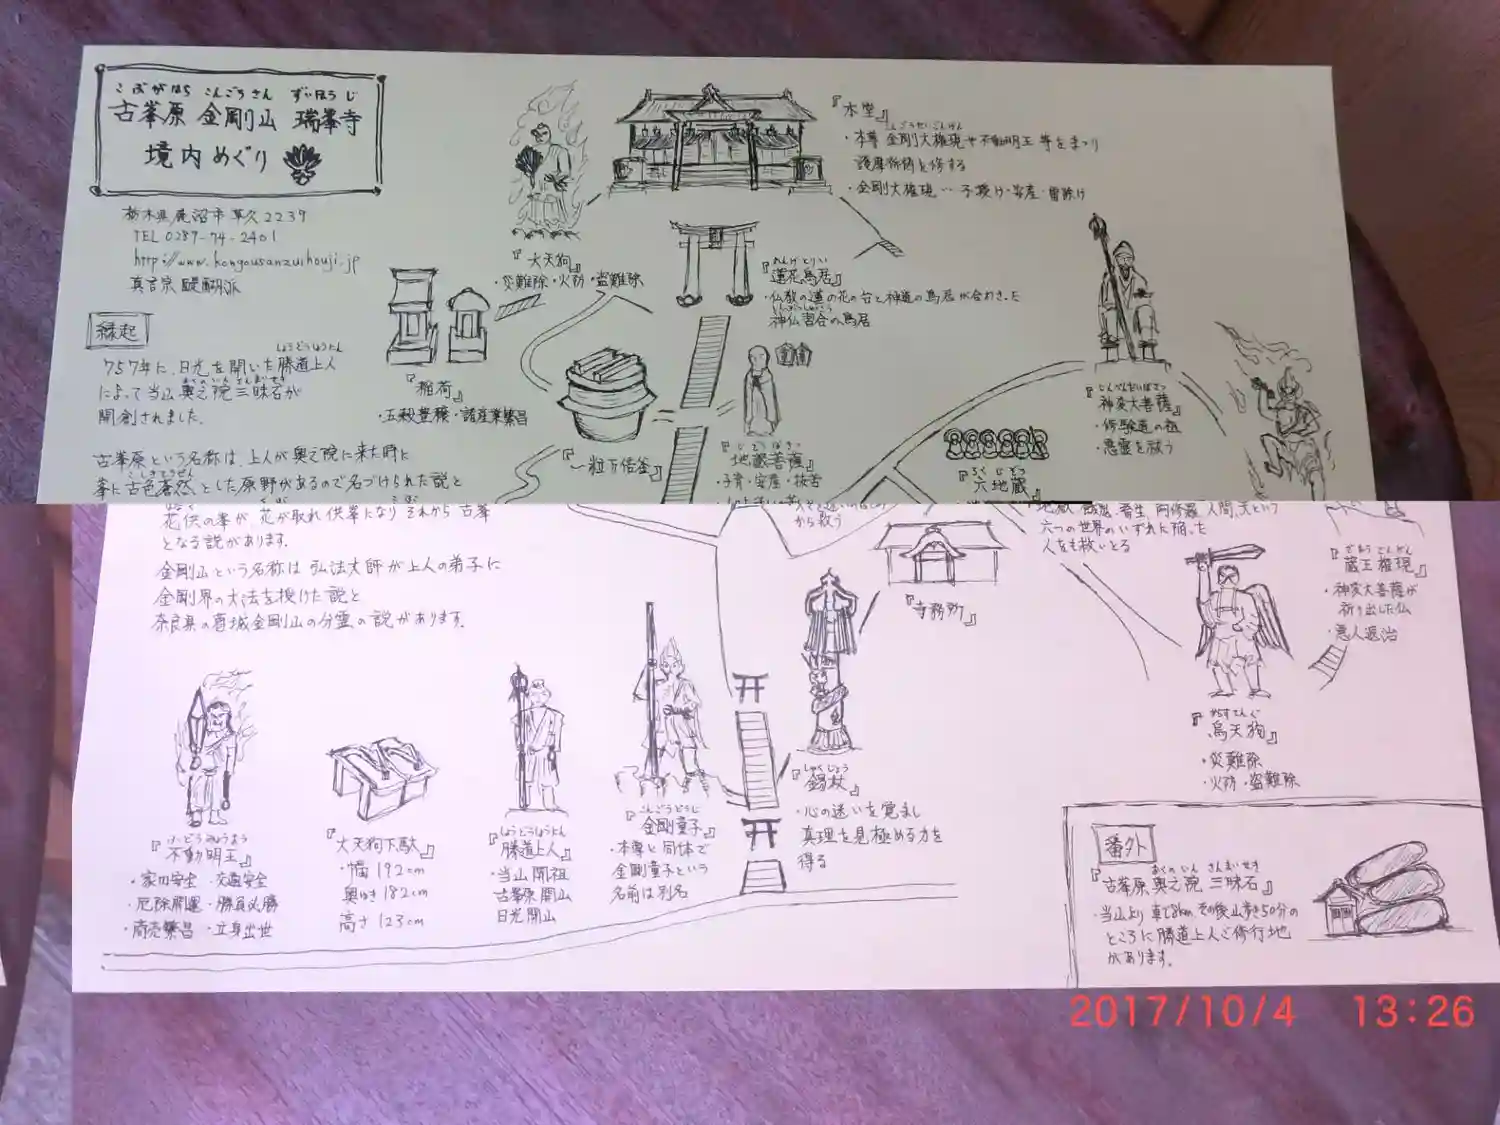 こぶがはら こんごうさん ずいほうじ
古峯原 金剛山 瑞峯寺
境内めぐり
栃木県鹿沼市草久2239
TEL 0289-74-2401
http://www.kongousanzuihouji.jp
真言宗 醍醐派
縁起
しょうどうしょうにん
757年に、日光を開いた勝道上人
おくのいん さんまいせき
によって当山 奥之院 三昧石が
開創されました。
古峯原という名称は、上人が奥之院に来た時に
こしきそうぜん
峯に古色蒼然とした原野があるので名づけられた説と
花供の峯が 花が取れ 供峯になり それから 古峯
となる説があります。
金剛山という名称は 弘法大師が上人の弟子に
金剛界の大法を授けた説と
奈良県の葛城金剛山の分霊の説があります。
『大天狗』
・災難除・火防・盗難除
『本堂』
・本尊 金剛大権現や不動明王 等をまつり
護摩祈祷を修する
・金剛大権現… 子授け・安産・雷除け
れんげとりい
『蓮花鳥居』
・仏教の蓮の花の台と神道の鳥居が合わさった
神仏習合の鳥居
『稲荷』
・五穀豊穣・諸産業繁昌
『一粒万倍釜』
じぞうぼさつ
『地蔵菩薩』
・子育・安産・抜苦
から救う
じんべんだいぼさつ
『神変大菩薩』
・修験道の祖
・悪霊を祓う
ろくじぞう
『六地蔵』
地獄 餓鬼 畜生 阿修羅 人間 天という
六つの世界のいずれに陥った
人をも救いとる
ざおうごんげん
『蔵王権現』
・神変大菩薩が
祈り出した仏
・悪人退治
『寺務所』
からすてんぐ
『烏天狗』
・災難除
・火防・盗難除
しゃくじょう
『錫杖』
・心の迷いを覚まし
真理を見極める力を
得る
こんごうどうじ
『金剛童子』
・本尊と同体で
金剛童子という
名前は別名
しょうどうしょうにん
『勝道上人』
・当山開祖
古峯原開山
日光開山
『大天狗下駄』
・幅 192cm
奥ゆき 182cm
高さ 123cm
ふどうみょうおう
『不動明王』
・家内安全 ・交通安全
・厄除開運 ・勝負必勝
・商売繁昌 ・立身出世
番外
おくのいん さんまいせき
『古峯原 奥之院 三昧石』
・当山より 車で8km その後山歩き50分の
ところに 勝道上人ご修行地
があります。
2017/10/4 13:26